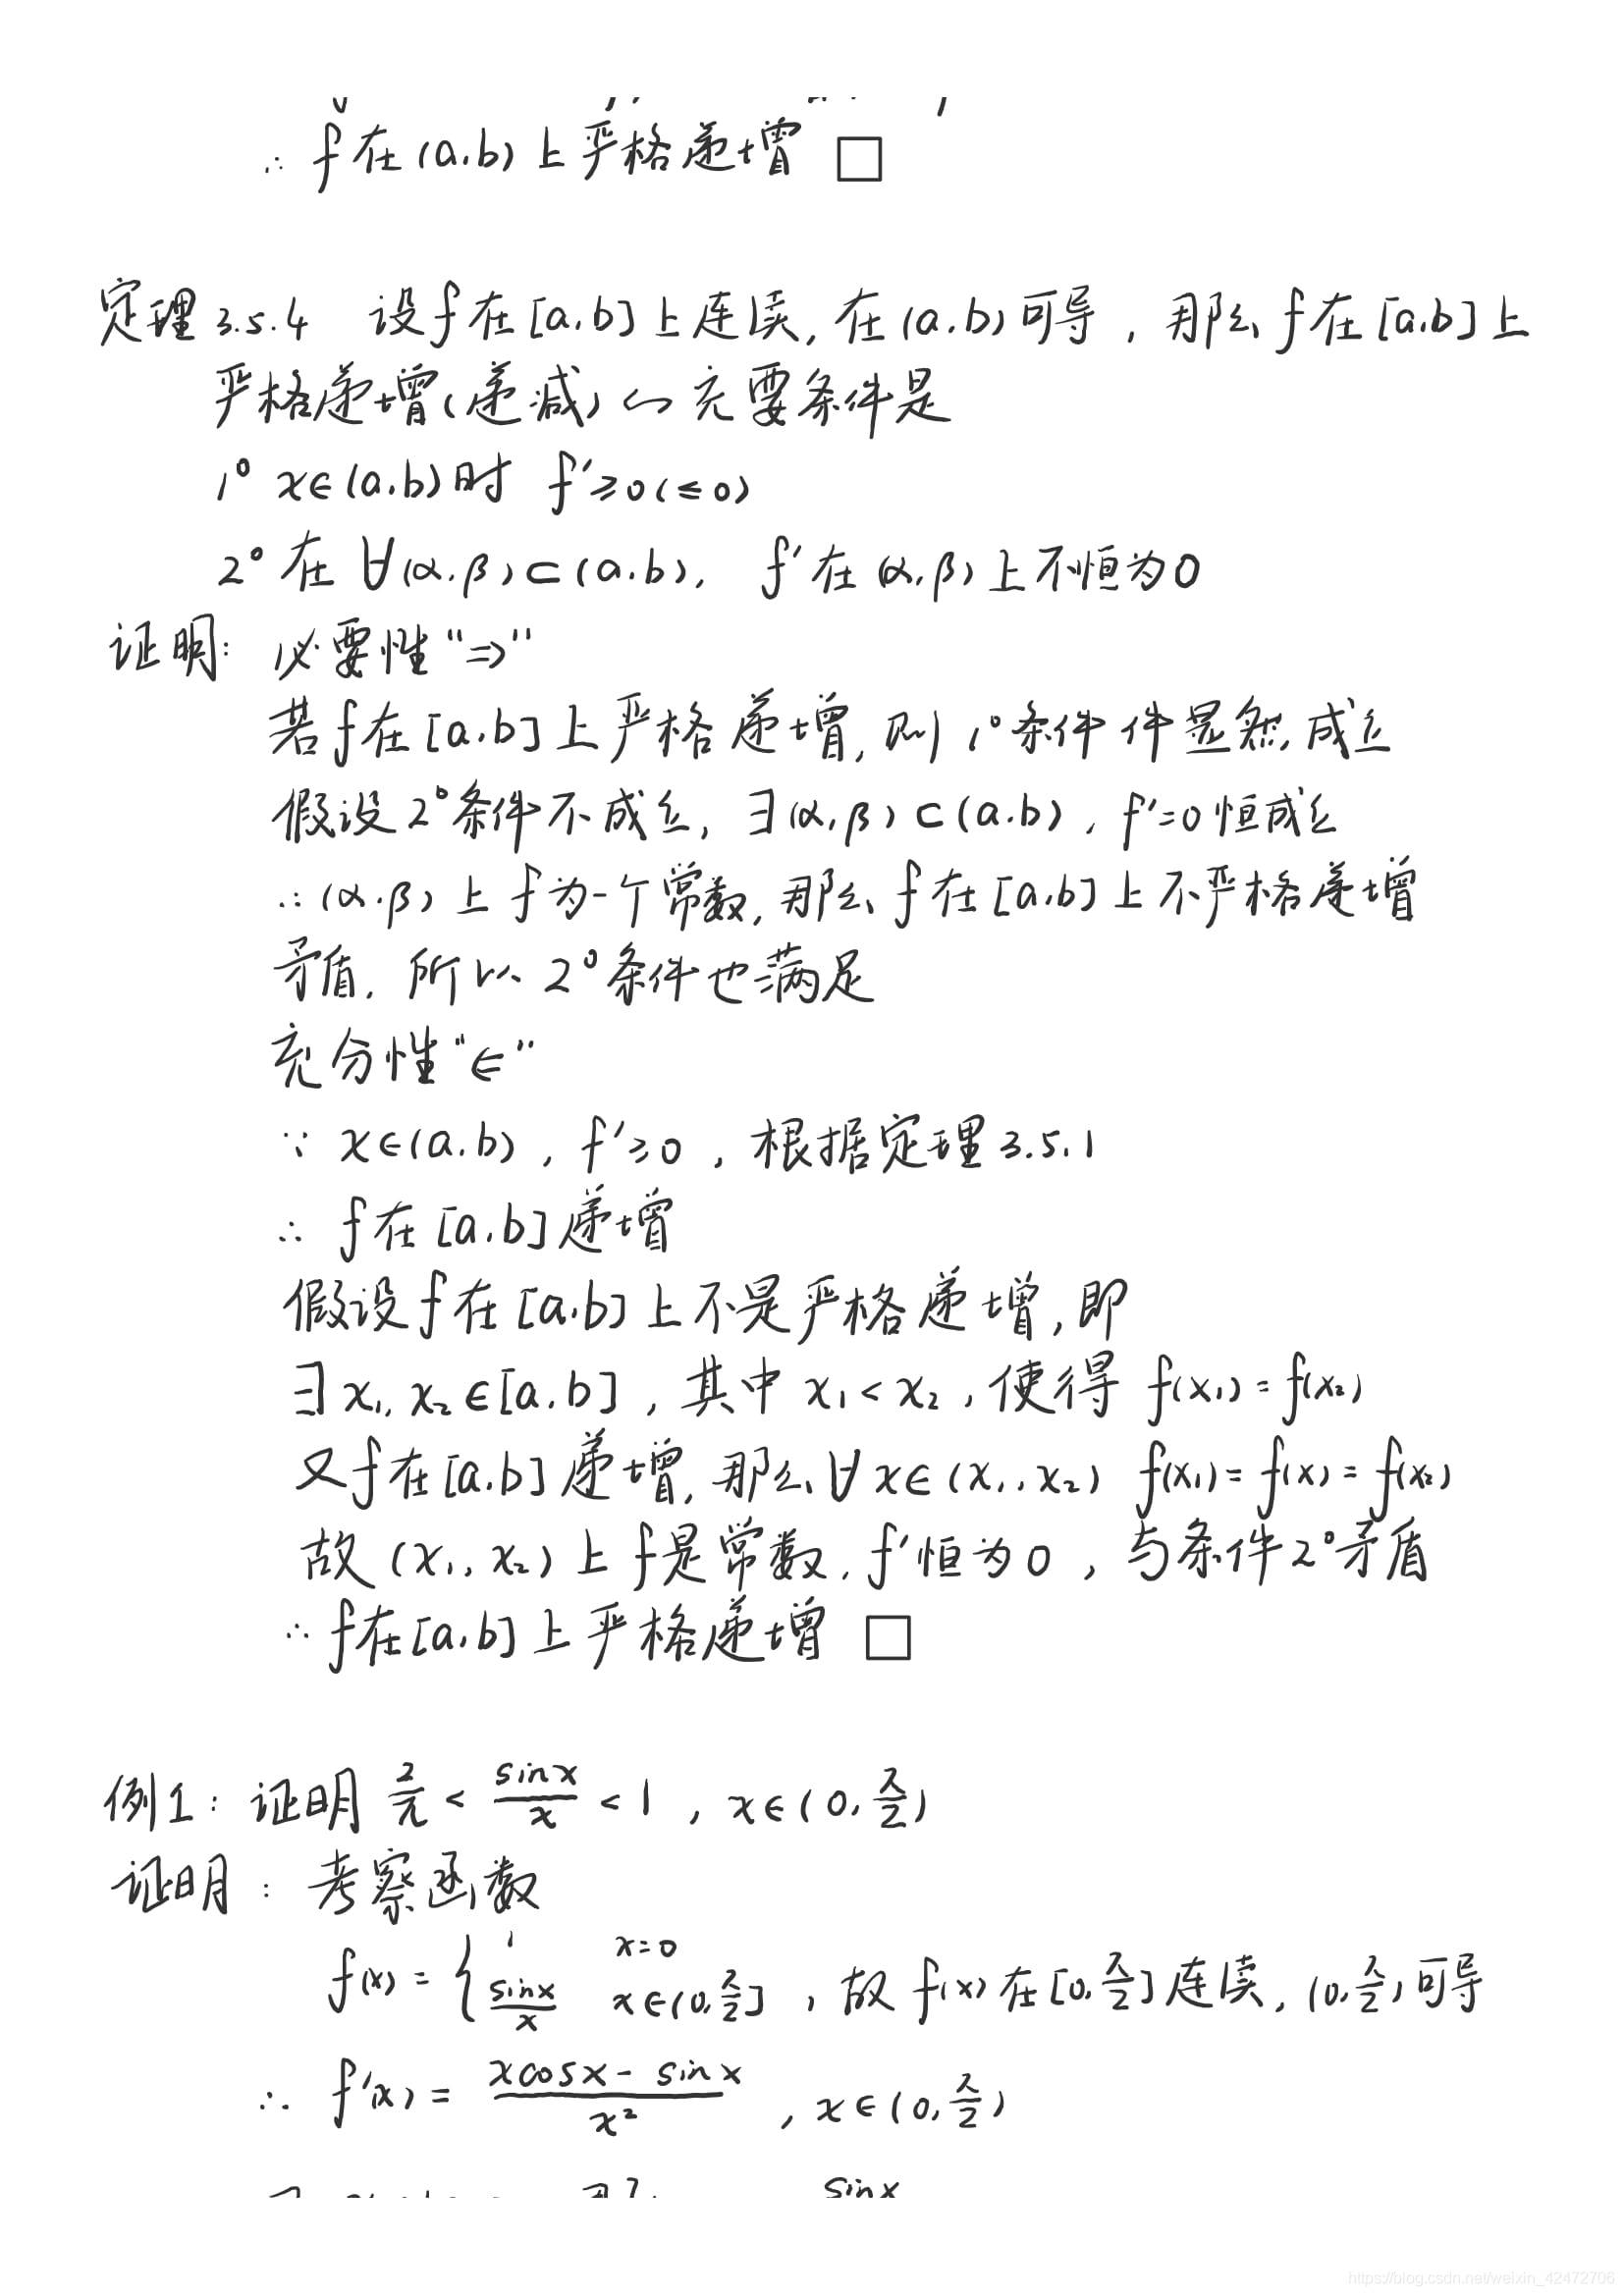 ∴ f在(a,b)上严格递增 □
定理3.5.4 设f在[a,b]上连续,在(a,b)可导,那么f在[a,b]上
严格递增(递减)的充要条件是
1° x∈(a,b)时 f'≥0(≤0)
2° 在∀(α,β)⊂(a,b), f'在(α,β)上不恒为0
证明: 必要性"⇒"
若f在[a,b]上严格递增,则1°条件件显然成立
假设2°条件不成立, ∃(α,β)⊂(a,b), f'=0恒成立
∴(α,β)上f为一个常数,那么f在[a,b]上不严格递增
矛盾, 所以2°条件也满足
充分性"⇐"
∵ x∈(a,b), f'≥0, 根据定理3.5.1
∴ f在[a,b]递增
假设f在[a,b]上不是严格递增,即
∃x₁,x₂∈[a,b],其中x₁<x₂,使得 f(x₁)=f(x₂)
又f在[a,b]递增,那么∀x∈(x₁,x₂) f(x₁)=f(x)=f(x₂)
故(x₁,x₂)上f是常数,f'恒为0,与条件2°矛盾
∴f在[a,b]上严格递增 □
例1: 证明 2/π < sinx/x < 1, x∈(0,π/2)
证明: 考察函数
f(x) = { 1 x=0
sinx/x x∈(0,π/2] ,故f(x)在[0,π/2]连续,(0,π/2)可导
∴ f'(x) = (xcosx - sinx)/x², x∈(0,π/2)
sinx
https://blog.csdn.net/weixin_42472706